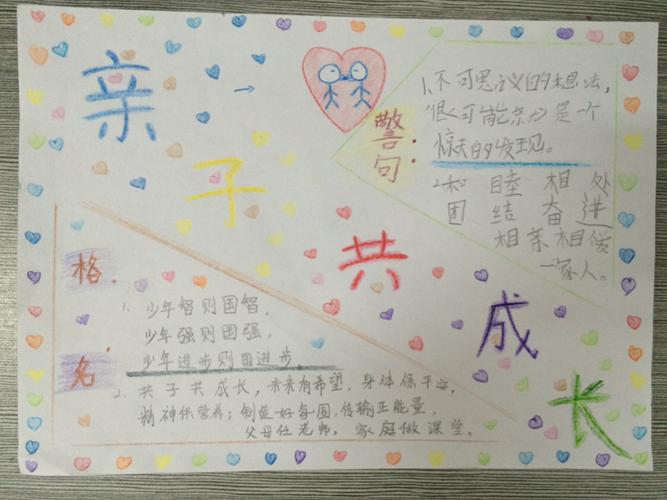 亲
子
共
成
长
警句:
1、不可思议的想法,
很可能就是一个
惊天的发现。
2和睦相处
团结奋进
相亲相爱
一家人。
格
名
1. 少年智则国智,
少年强则国强,
少年进步则国进步.
2. 共子共成长,未来有希望,身体保平安,
精神保营养;制造好每圆,传输正能量,
父母任老师,家庭做课堂。